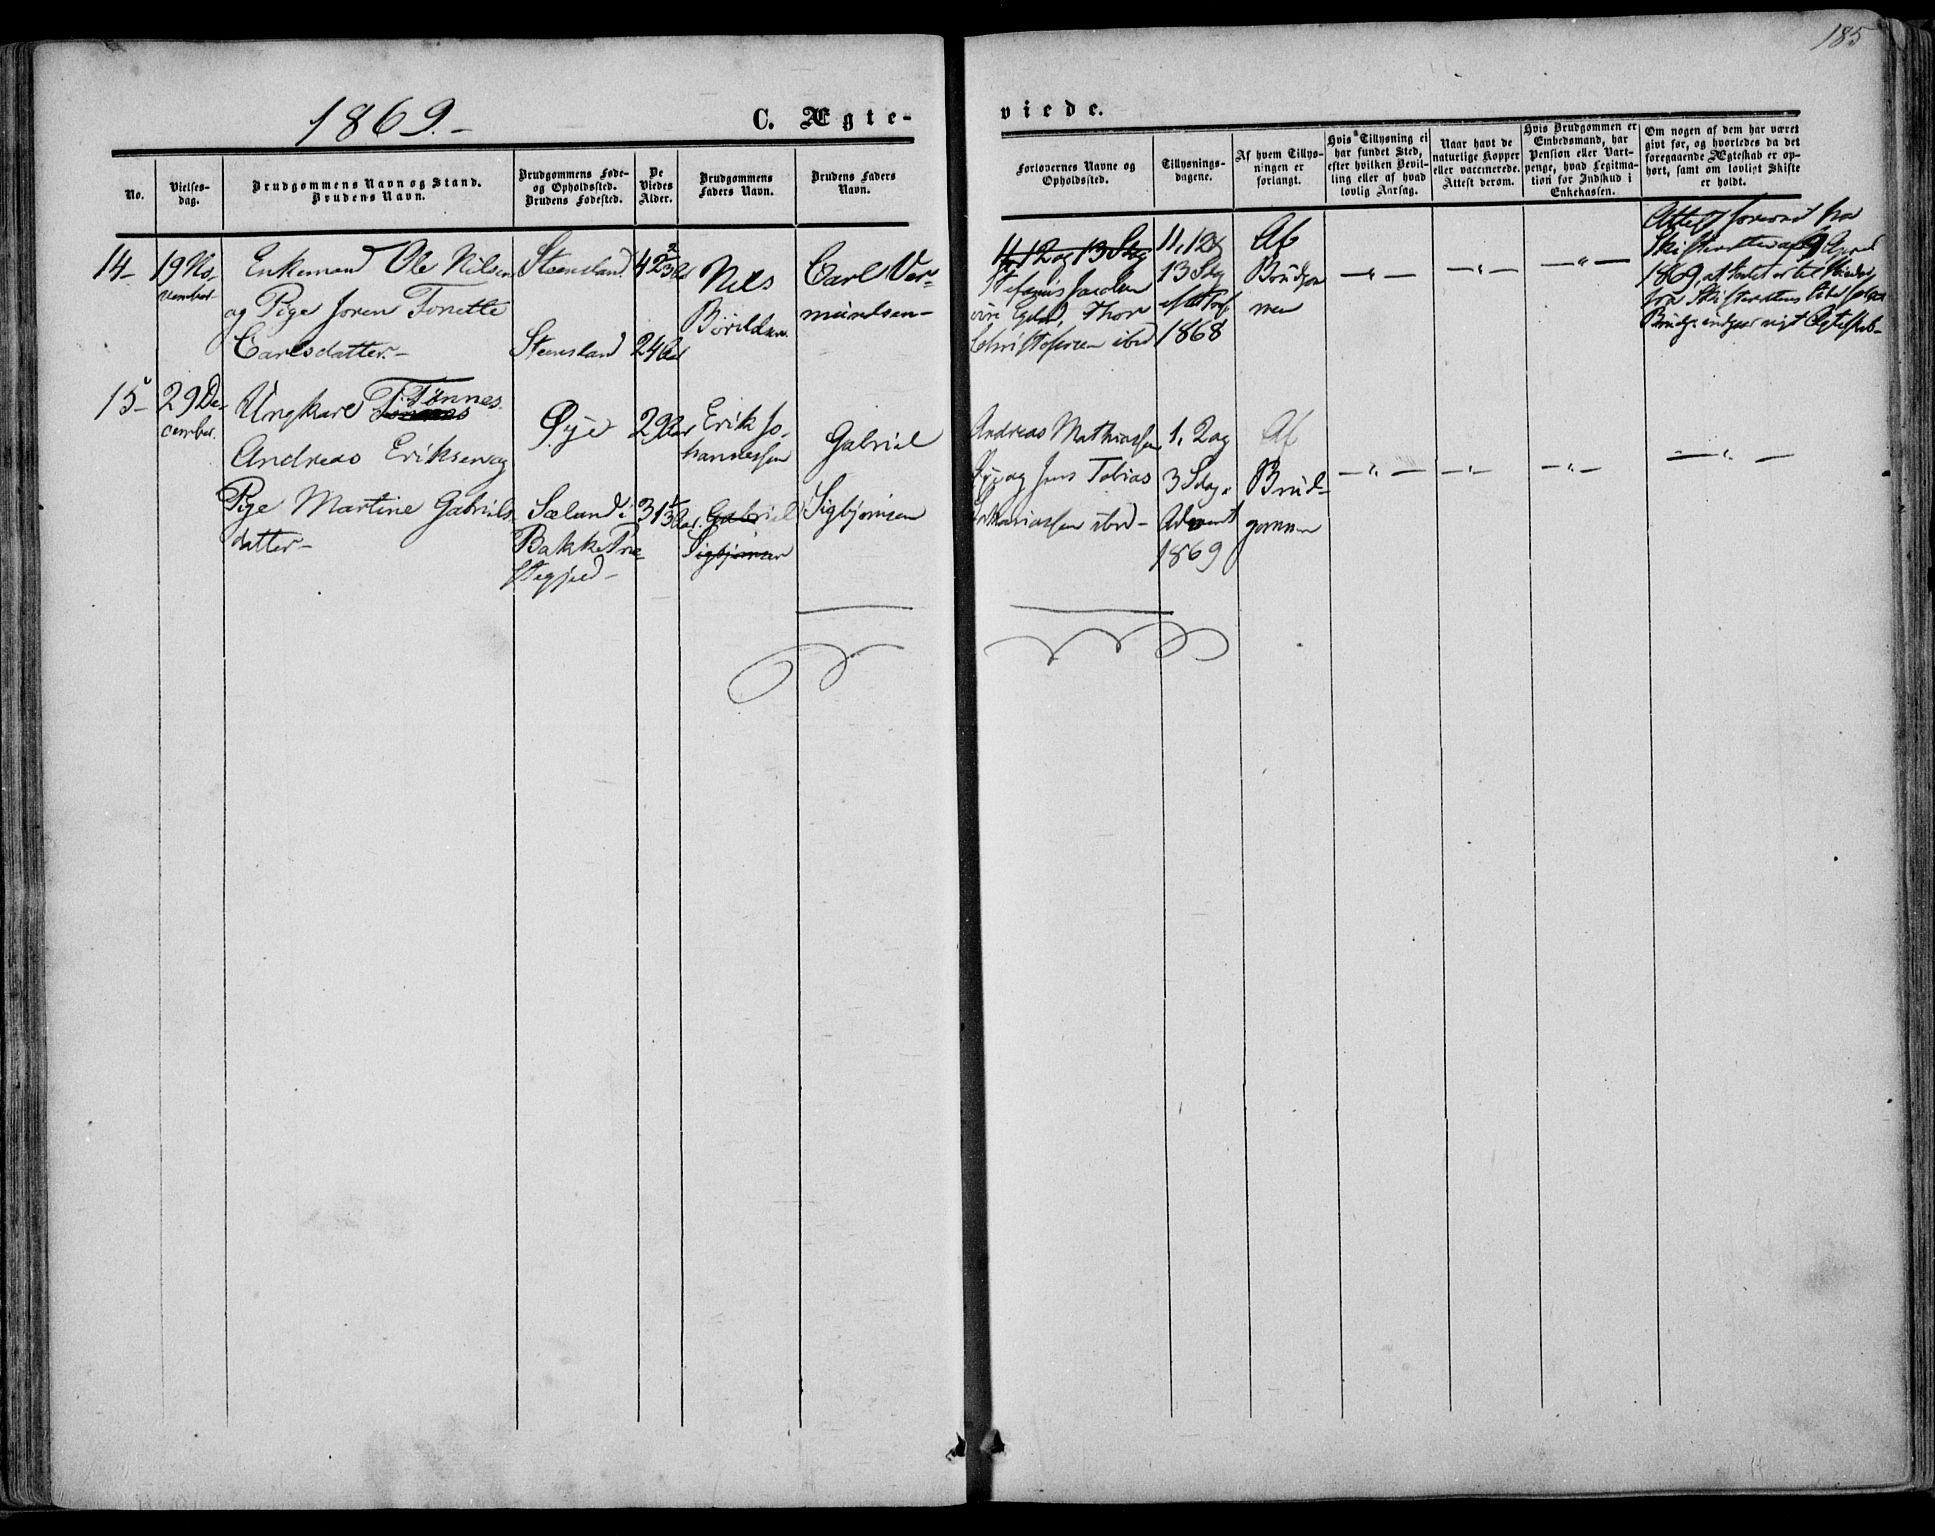 185
1869.-
C. Ægte-
viede.
No.
Vielses-
dag.
Brudgommens Navn og Stand.
Brudens Navn.
Brudgommens Føde-
og Opholdssted.
Brudens Fødested.
De
Viedes
Alder.
Brudgommens
Faders Navn.
Brudens Faders
Navn.
Forlovernes Navne og
Opholdssted.
Tillysnings-
dagene.
Af hvem Tillys-
ningen er
forlangt.
Hvis Tillysning ei
har fundet Sted,
efter hvilken Bevil-
ling eller af hvad
lovlig Aarsag.
Naar havt de
naturlige Kopper
eller vaccinerede.
Attest derom.
Hvis Brudgommen er
Embedsmand, har
Pension eller Vart-
penge, hvad Legitima-
tion for Indskud i
Enkekassen.
Om nogen af dem har været
givt før, og hvorledes da det
foregaaende Ægteskab er op-
hørt, samt om lovligt Skifte
er holdt.
14-
19 No-
vember
Enkemand Ole Nilsen
og Pige Joren Tonette
Carlsdatter-
Steensland.
Steensland
42 2/3 Aar
24 Aar
Nils
Børildsen
Carl Ver-
mundsen-
11, 12 og 13 Sdg
Stefanus Jacobsen
øvre Egeland, Thor
Christofersen ibid
11, 12 og
13 Sdg
efter
1868
Af
Brudgom
men
-"-
-"-
-"-
Attest foreviist fra
Skifteretten af 9 April
1869, at
fra Skifterettens Side
Brudg. indgaar nyt Ægteskab-
15-
29 De-
cember.
Ungkarl Tønnes Tønnes
Andreas Eriksen og
Pige Martine Gabriels
datter-
Øye
Sæland i
Bakke Præ
stegjeld-
29 Aar
31 1/3 Aar.
Erik Jo-
hannessen
Gabriel
Sigbjørnsen
Gabriel
Sigbjørnsen
Andreas Mathiassen
Øye og Jens Tobias
Zakariassen ibid-
1, 2 og
3 Sdag
Advent
1869
Af
Brud-
gommen
-"-
-"-
-"-
-"-